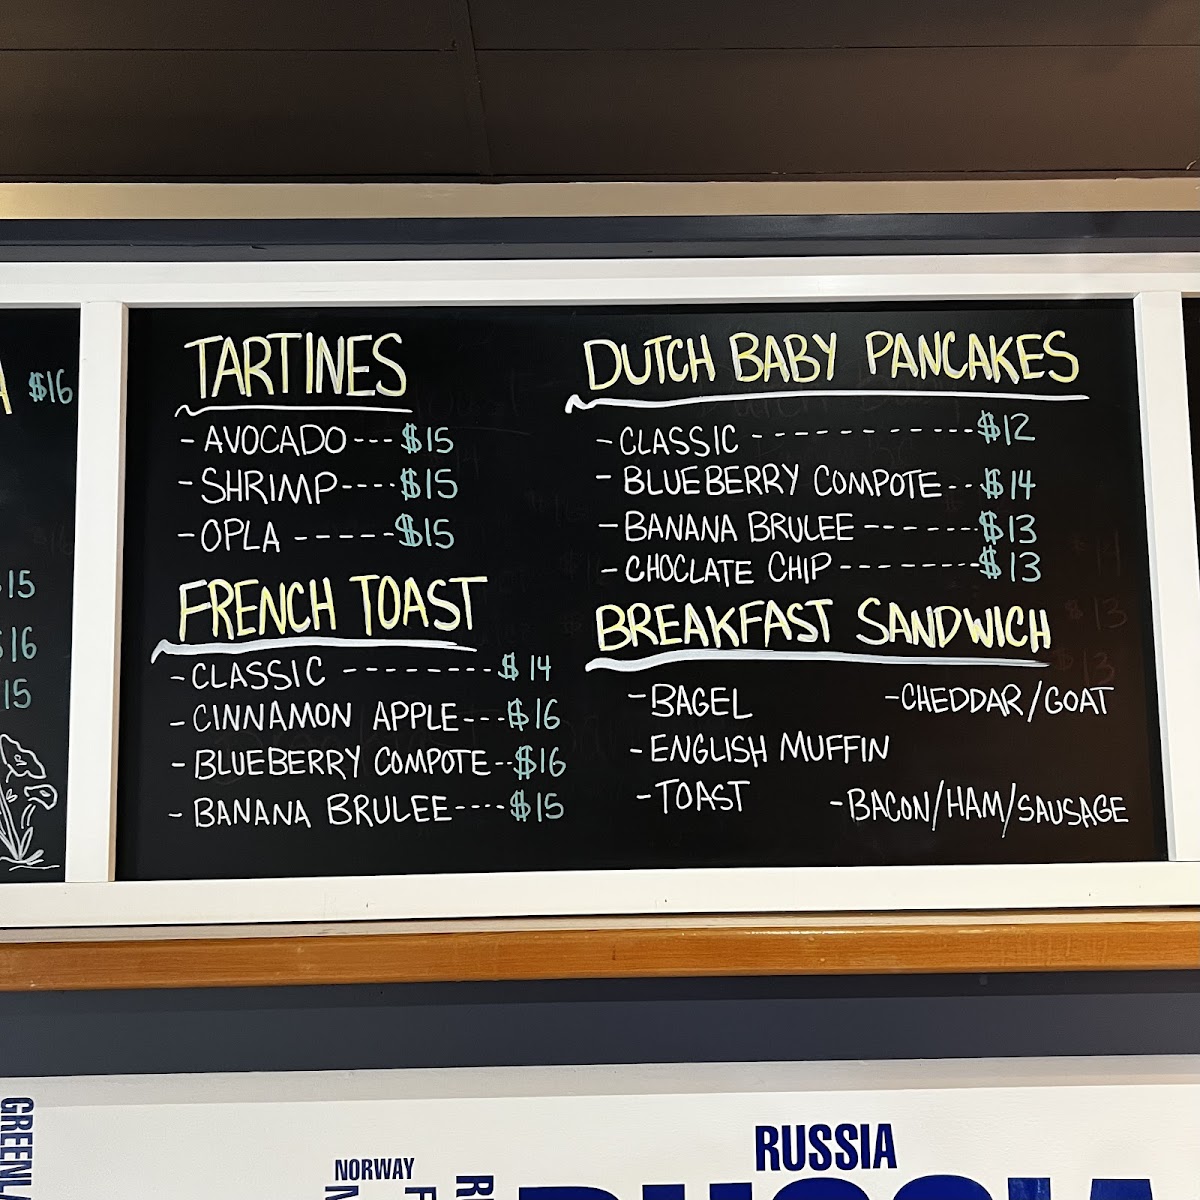 $16
$15
$16
$15
TARTINES
- AVOCADO --- $15
- SHRIMP ---- $15
- OPLA ------ $15
FRENCH TOAST
- CLASSIC -------- $14
- CINNAMON APPLE --- $16
- BLUEBERRY COMPOTE -- $16
- BANANA BRULEE ---- $15
DUTCH BABY PANCAKES
- CLASSIC ----------- $12
- BLUEBERRY COMPOTE --- $14
- BANANA BRULEE ------- $13
- CHOCLATE CHIP --------- $13
BREAKFAST SANDWICH
- BAGEL
- CHEDDAR/GOAT
- ENGLISH MUFFIN
- TOAST
- BACON/HAM/SAUSAGE
RUSSIA
NORWAY